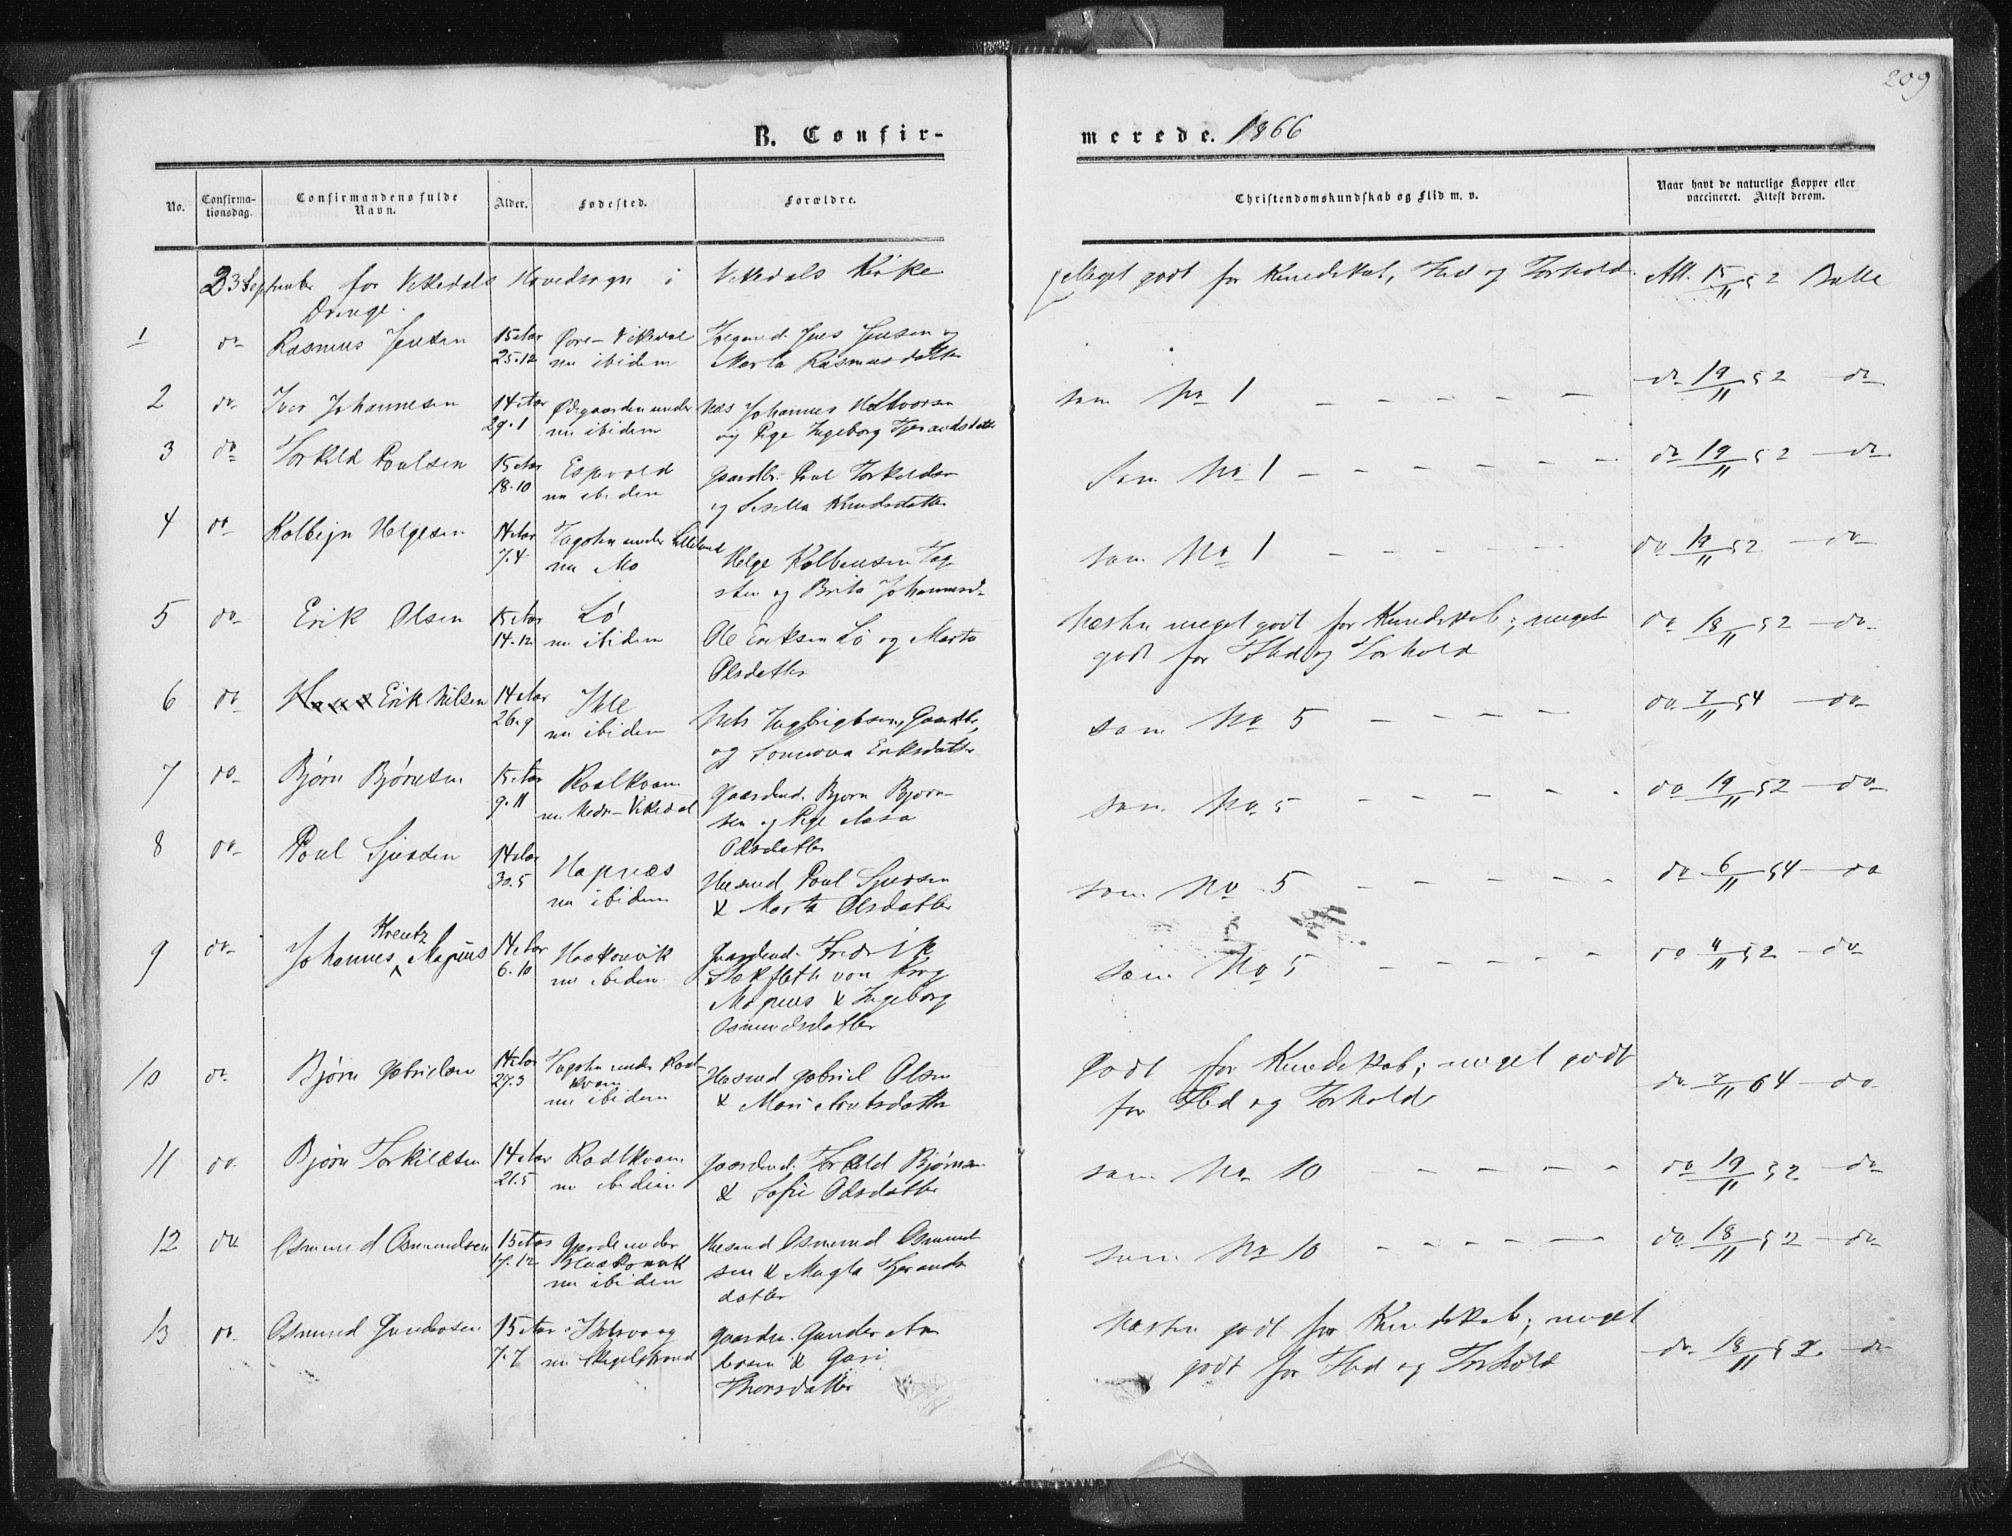 209
B. Confir-
merede. 1866
No.
Confirma-
tionsdag.
Confirmandens fulde
Navn.
Alder.
Fødested.
Forældre.
Christendomskundskab og Flid m. v.
Naar havt de naturlige Kopper eller
vaccineret. Attest derom.
23 September for Vikedals Hovedsogn i Vikedals Kirke
Drenge.
1 do Rasmus Jensen 15 Aar Øvre-Vikedal Jens Jensen og
25.12 nu ibidem Marta Rasmusdatter
Meget godt for Kundskab, Flid og Forhold. Att. 15/11 52 Balle
2 do Iver Johannesen 14 Aar Ødegaarden under Johannes Halvorsen
29.1 nu ibidem og Pige Ingeborg
som No 1 — — — — — do 19/11 52 do
3 do Torkild Poulsen 15 Aar Espevold Gaardbr. Poul Torkildsen
18.10 nu ibidem og Sisilla Knudsdatter
Som No 1 — — — — — do 19/11 52 do
4 do Kolbejn Helgesen 14 Aar Tagsten under Lilleland Helge Kolbensen Tag-
7.4 nu Mo sten og Brita Johannesd.
som No 1 — — — — do 19/11 52 do
5 do Erik Olsen 15 Aar Lø Ole Eriksen Lø og Marta
14.12 nu ibidem Olsdatter
Næsten meget godt for Kundskab; meget do 18/11 52 do
godt for Flid og Forhold
6 do Erik Nilsen 14 Aar
26.9 nu ibidem Nils Gaardbr.
og Eriksdatter
som No 5 — — — — do 7/11 54 do
7 do Bjørn Bjørnsen 15 Aar Roalkvam Gaardmd. Bjørn Bjørn-
9.11 nu Nedre-Vikedal sen og Pige Aasa
Olsdatter
som No 5 — — — — do 19/11 52 do
8 do Poul Sjursen 14 Aar Hapnæs Husmd Poul Sjursen
30.5 nu ibidem & Marta Olsdatter
som No 5 — — — — do 6/11 54 do
9 do Johannes Kreutz Magnus 14 Aar Haakonvik Gaardmd. Fredrik
6.10 nu ibidem von Krog
Magnus & Ingeborg
Osmundsdatter
som No 5 — — — — do 4/11 52 do
10 do Bjørn Gabrielsen 14 Aar Tagsten under Roal- Husmd Gabriel Olsen
27.3 kvam
nu ibidem & Mari
Godt for Kundskab; meget godt
for Flid og Forhold do 7/11 64 do
11 do Bjørn Torkildsen 14 Aar Roalkvam Gaardmd. Torkild Bjørnsen
21.5 nu ibidem & Sofie Olsdatter
som No 10 — — — — do 19/11 52 do
12 do Osmund Osmundsen 15 Aar Gjerde under Husmd Osmund Osmund-
17.12 Haakonvik
nu ibidem sen & Magla
datter
som No 10 — — — — do 18/11 52 do
13 do Osmund Gundersen 15 Aar Gaardm. Gunder
7.7 nu & Guri
Thorsdatter
Næsten godt for Kundskab; meget
godt for Flid og Forhold do 18/11 52 do